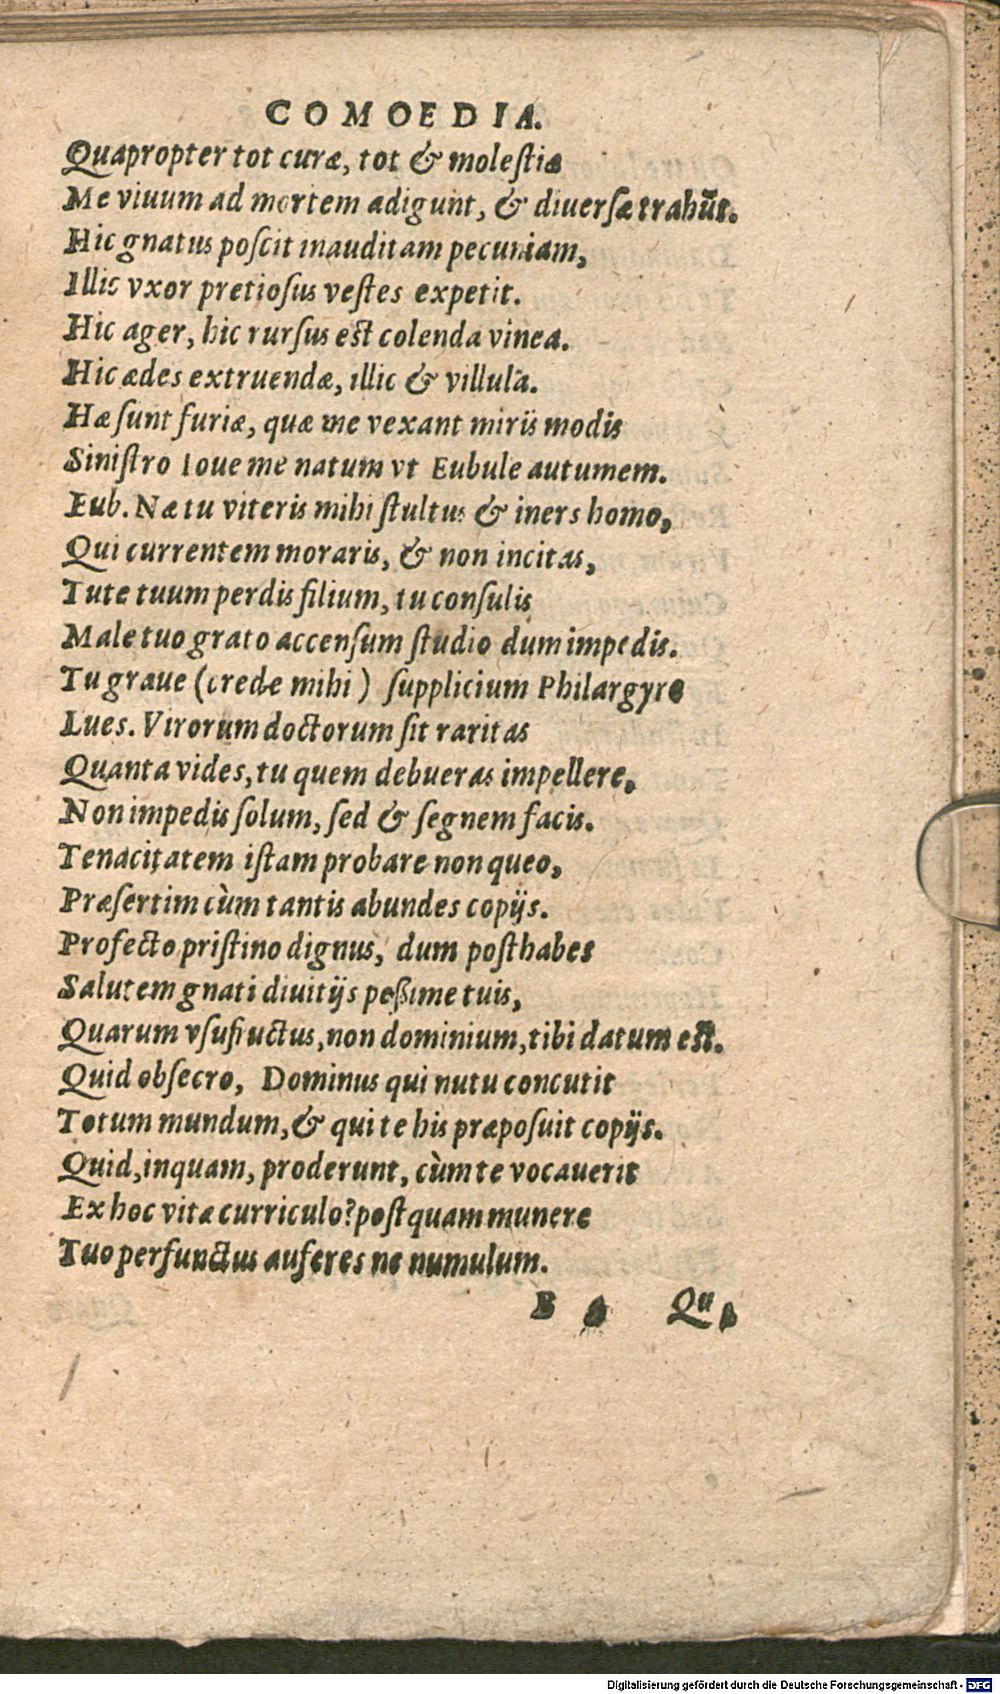 COMOEDIA.
Quapropter tot curæ, tot & molestiæ
Me viuum ad mortem adigunt, & diuersæ trahūt.
Hic gnatus poscit inauditam pecuniam,
Illic vxor pretiosus vestes expetit.
Hic ager, hic rursus est colenda vinea.
Hic ædes extruendæ, illic & villula.
Hæ sunt furiæ, quæ me vexant miris modis
Sinistro Ioue me natum vt Eubule autumem.
Eub. Næ tu viteris mihi stultus & iners homo,
Qui currentem moraris, & non incitas,
Tute tuum perdis filium, tu consulis
Male tuo grato accensum studio dum impedis.
Tu graue (crede mihi) supplicium Philargyre
Lues. Virorum doctorum sit raritas
Quanta vides, tu quem debueras impellere,
Non impedis solum, sed & segnem facis.
Tenacitatem istam probare non queo,
Præsertim cùm tantis abundes copijs.
Profecto pristino dignus, dum posthabes
Salutem gnati diuitijs peßime tuis,
Quarum vsufructus, non dominium, tibi datum est.
Quid obsecro, Dominus qui nutu concutit
Totum mundum, & qui te his præposuit copijs.
Quid, inquam, proderunt, cùm te vocauerit
Ex hoc vitæ curriculo? postquam munere
Tuo perfunctus auferes ne numulum.
B
Digitalisierung gefördert durch die Deutsche Forschungsgemeinschaft - DFG